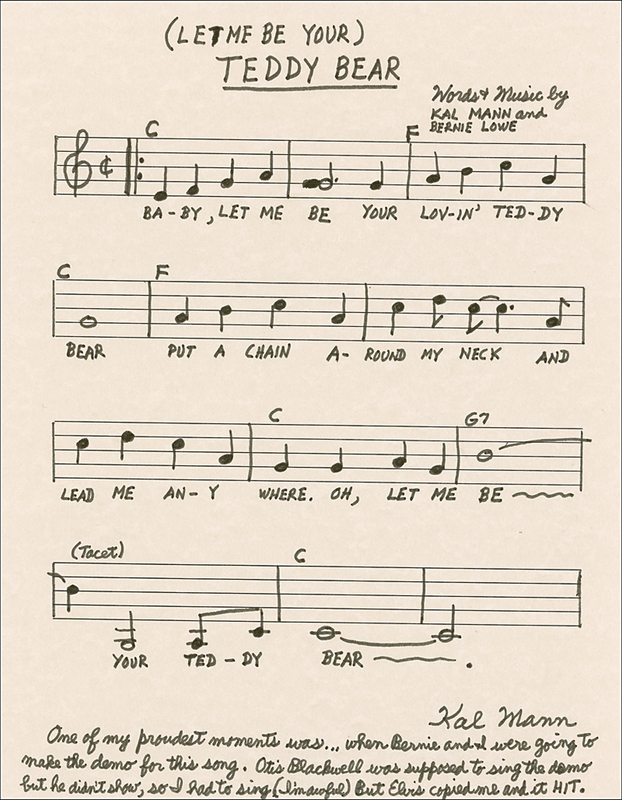 (LET ME BE YOUR)
TEDDY BEAR
Words & Music by
KAL MANN and
BERNIE LOWE
C F
BA-BY, LET ME BE YOUR LOV-IN' TED-DY
C F
BEAR PUT A CHAIN A-ROUND MY NECK AND
C G7
LEAD ME AN-Y WHERE. OH, LET ME BE
(Tacet) C
YOUR TED-DY BEAR.
Kal Mann
One of my proudest moments was... when Bernie and I were going to
make the demo for this song. Otis Blackwell was supposed to sing the demo
but he didn't show, so I had to sing (I'm awful) But Elvis copied me and it HIT.